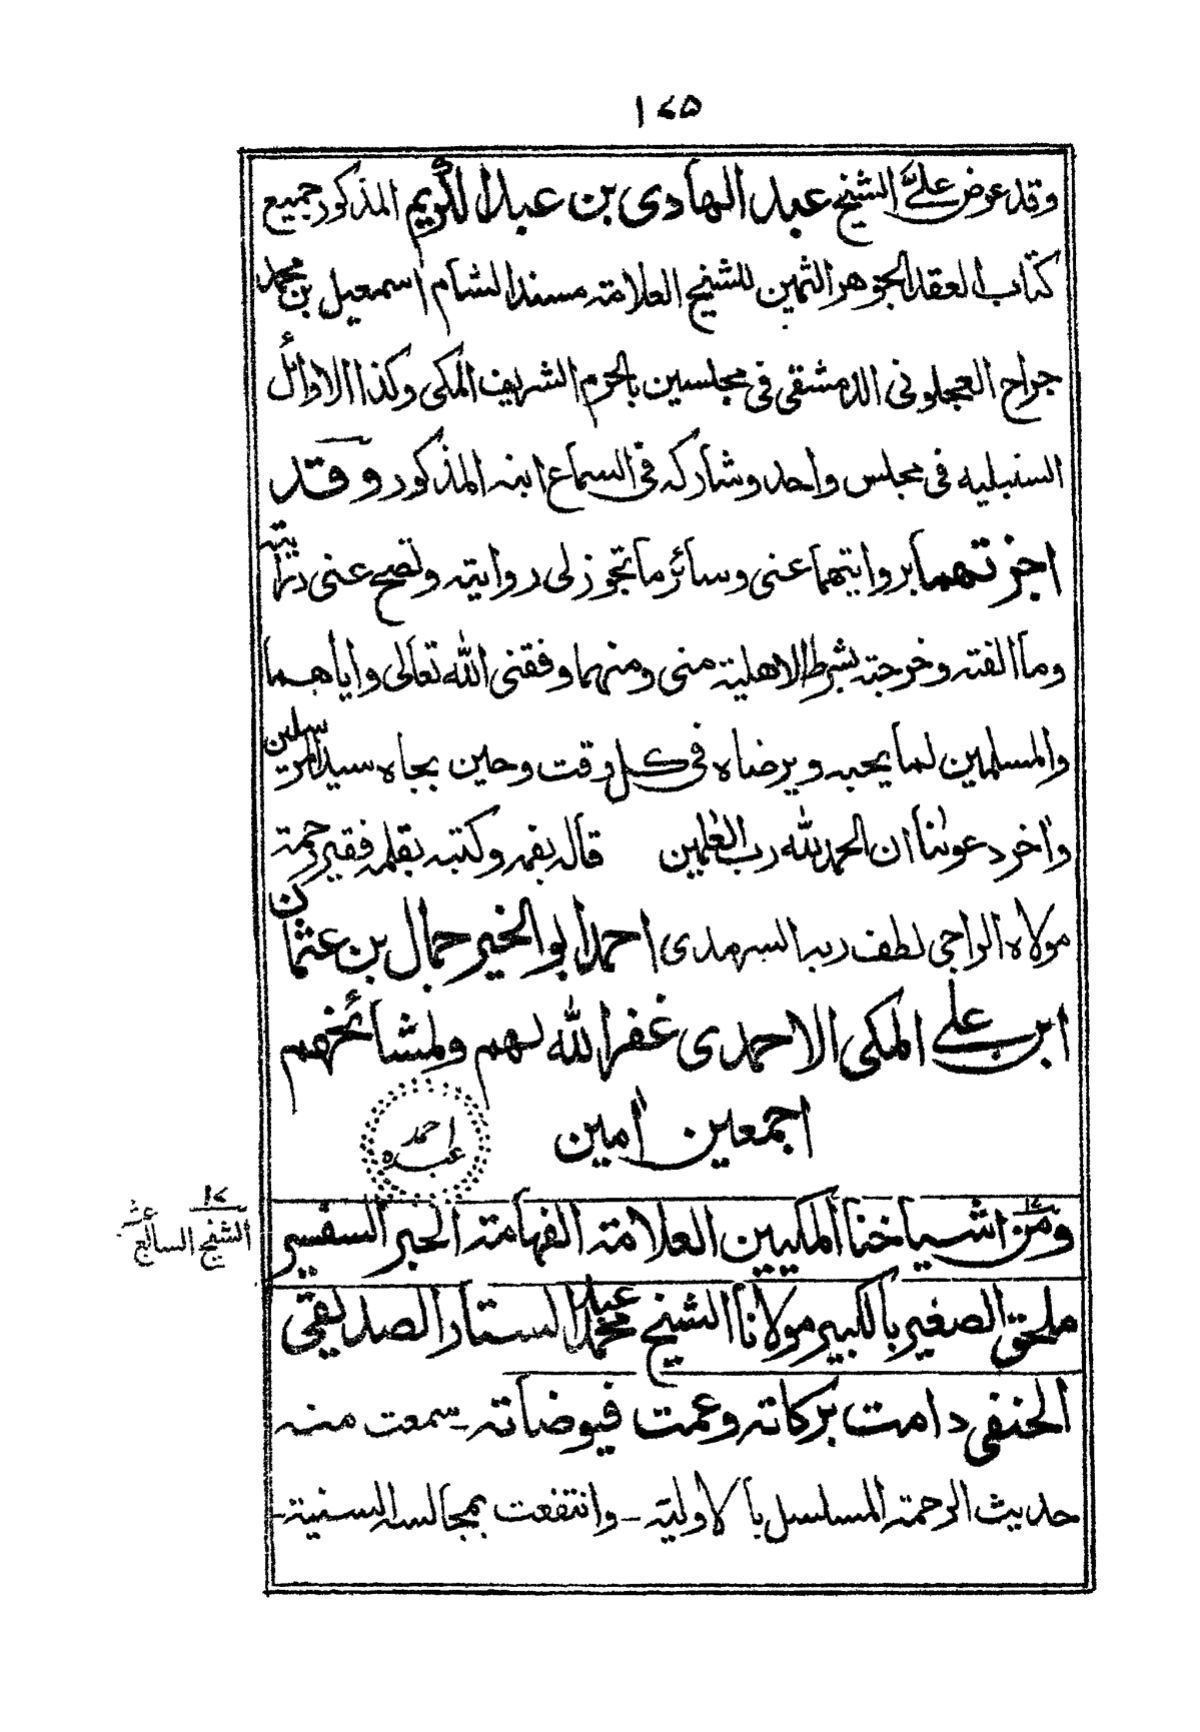 ١٧٥
وقد عوض علىَّ الشيخ عبد الهادى بن عبد الكريم المذكور جميع
كتاب العقد الجوهر الثمين للشيخ العلامة مسند الشام اسمعيل بن محمد
جراح العجلونى الدمشقى فى مجلسين بالحرم الشريف المكى وكذا الاوائل
السنبليه فى مجلس واحد وشاركه فى السماع ابنه المذكور وقد
اجزتهما بروايتهما عنى وسائر ما تجوز لى روايته وتصح عنى درايته
وما الفته وخرجته بشرط الاهلية منى ومنهما وفقنى الله تعالى واياهما
والمسلمين لما يحبه ويرضاه فى كل وقت وحين بجاه سيد المرسلين
واٰخر دعوٰنا ان الحمد لله رب العٰلمين قاله بفمه وكتبه بقلمه فقير رحمة
مولاه الراجى لطف ربه السرمدى احمد ابو الخير جمال بن عثمان
ابن على المكى الاحمدى غفر الله لهم ولمشائخهم
اجمعين اٰمين
احمد
عبده
١٧
ومن اشياخنا المكيين العلامة الفهامة الحبر السفسير
١٧
الشيخ السابع عشر
ملحق الصغير بالكبير مولانا الشيخ محمد عبد الستار الصديقى
الحنفى دامت بركاته وعمت فيوضاته ـ سمعت منه
حديث الرحمة المسلسل بالاولية ـ وانتفعت بمجالسه السنية ـ